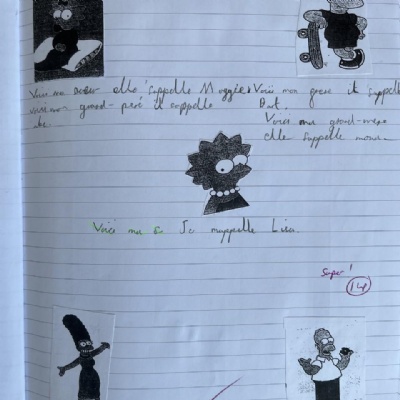 Voici ma sœur elle s'appelle Maggie
Voici mon grand-peré il sappelle
abe.
Voici mon frere il s'appelle
Bart.
Voici ma grand-mere
elle s'appelle mona
Voici ma Je mappelle Lisa.
Super!